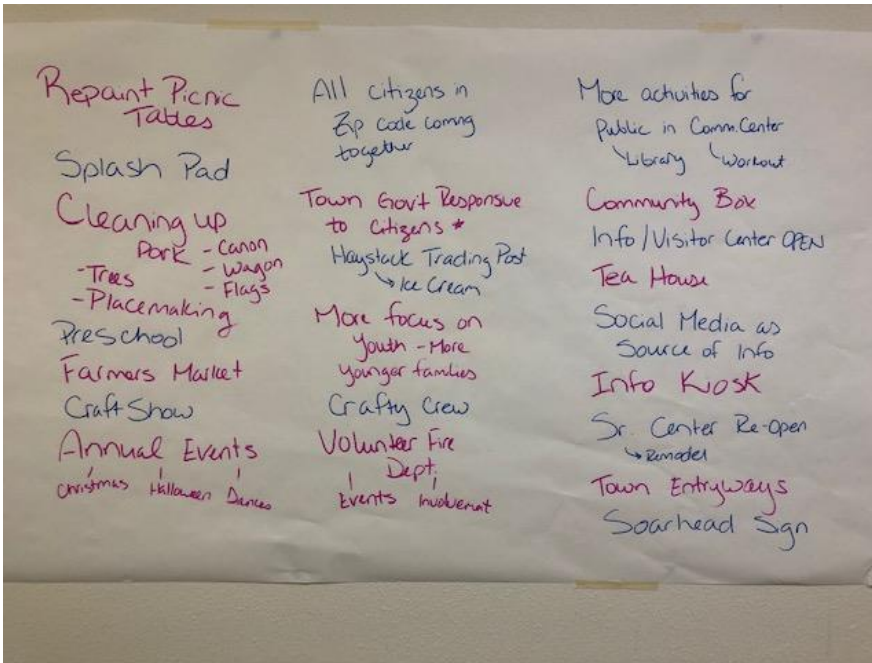 Repaint Picnic
Tables
Splash Pad
Cleaning up
Park - Canon
- Trees - Wagon
- Flags
- Placemaking
Preschool
Farmers Market
Craft Show
Annual Events
Christmas Halloween Dances
All citizens in
Zip code coming
together
Town Gov't Responsive
to citizens *
Haystack Trading Post
Ice Cream
More focus on
Youth - More
younger families
Crafty Crew
Volunteer Fire
Dept.
Events Involvement
More activities for
Public in Comm. Center
Library Workout
Community Box
Info/Visitor Center OPEN
Tea House
Social Media as
Source of Info
Info Kiosk
Sr. Center Re-Open
Remodel
Town Entryways
Soarhead Sign